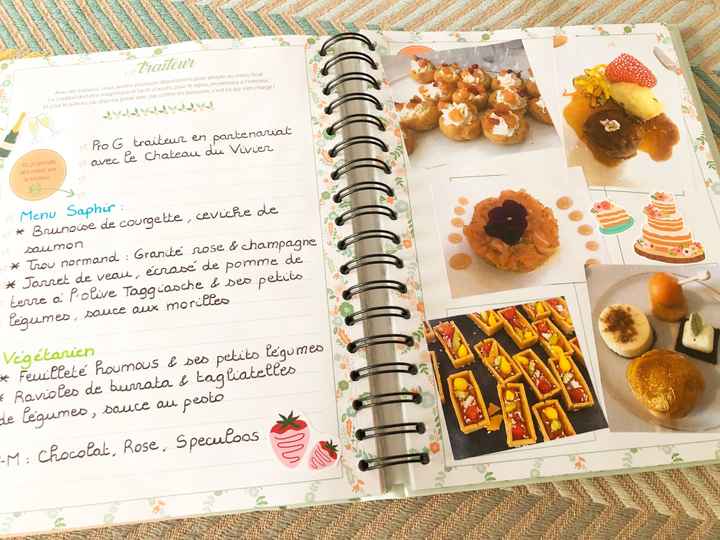 Traiteur
Pro G traiteur en partenariat
avec le Chateau du Vivier
Menu Saphir :
* Brunoise de courgette, ceviche de
saumon
* Trou normand : Granité rose & champagne
* Jarret de veau, écrasé de pomme de
terre à l'olive Taggiasche & ses petits
légumes, sauce aux morilles
Végétarien
* Feuilleté houmous & ses petits légumes
* Ravioles de burrata & tagliatelles
de légumes, sauce au pesto
-M : Chocolat, Rose, Speculoos